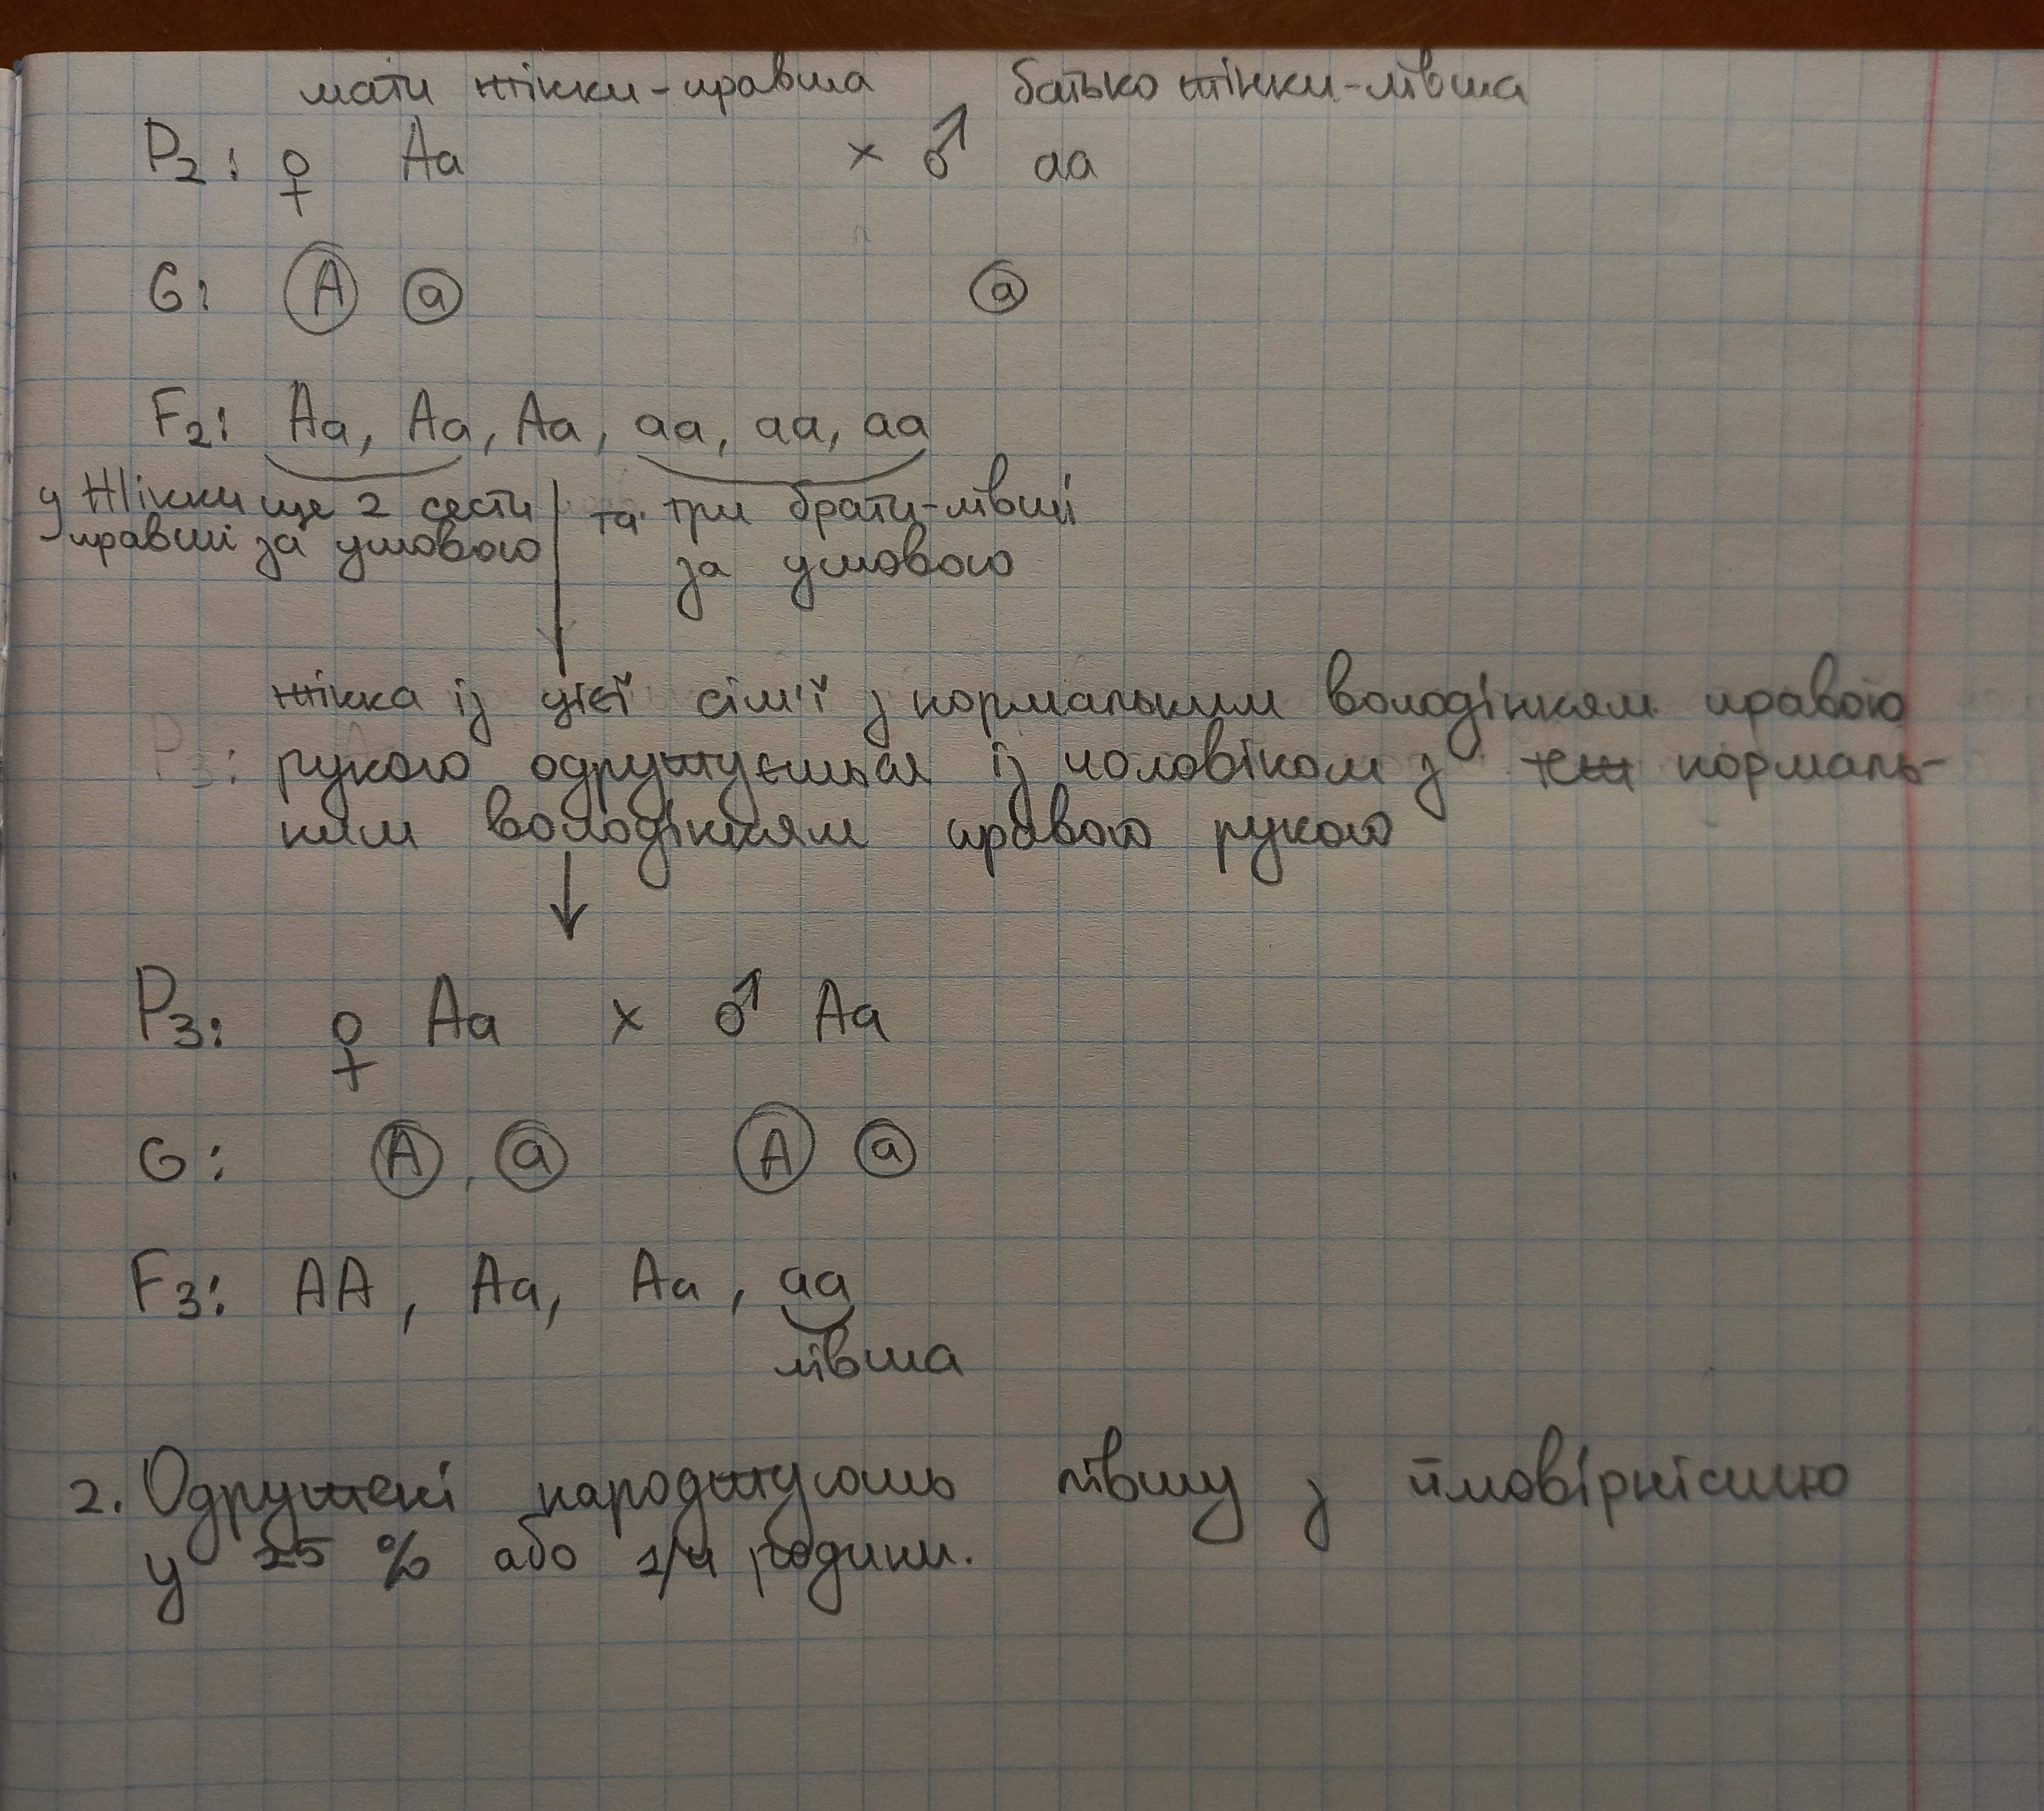 мати жінки-правша батько жінки-лівша
P2: ♀ Aa × ♂ aa
G: A a a
F2: Aa, Aa, Aa, aa, aa, aa
у жінки ще 2 сести та три брати-лівші
правші за умовою за умовою
жінка із цієї сім'ї з нормальним володінням правою
P3: рукою одружується із чоловіком з теж нормаль-
ним володінням правою рукою
P3: ♀ Aa × ♂ Aa
G: A, a A a
F3: AA, Aa, Aa, aa
лівша
2. Одружені народжують лівшу з ймовірністю
у 25 % або 1/4 родини.